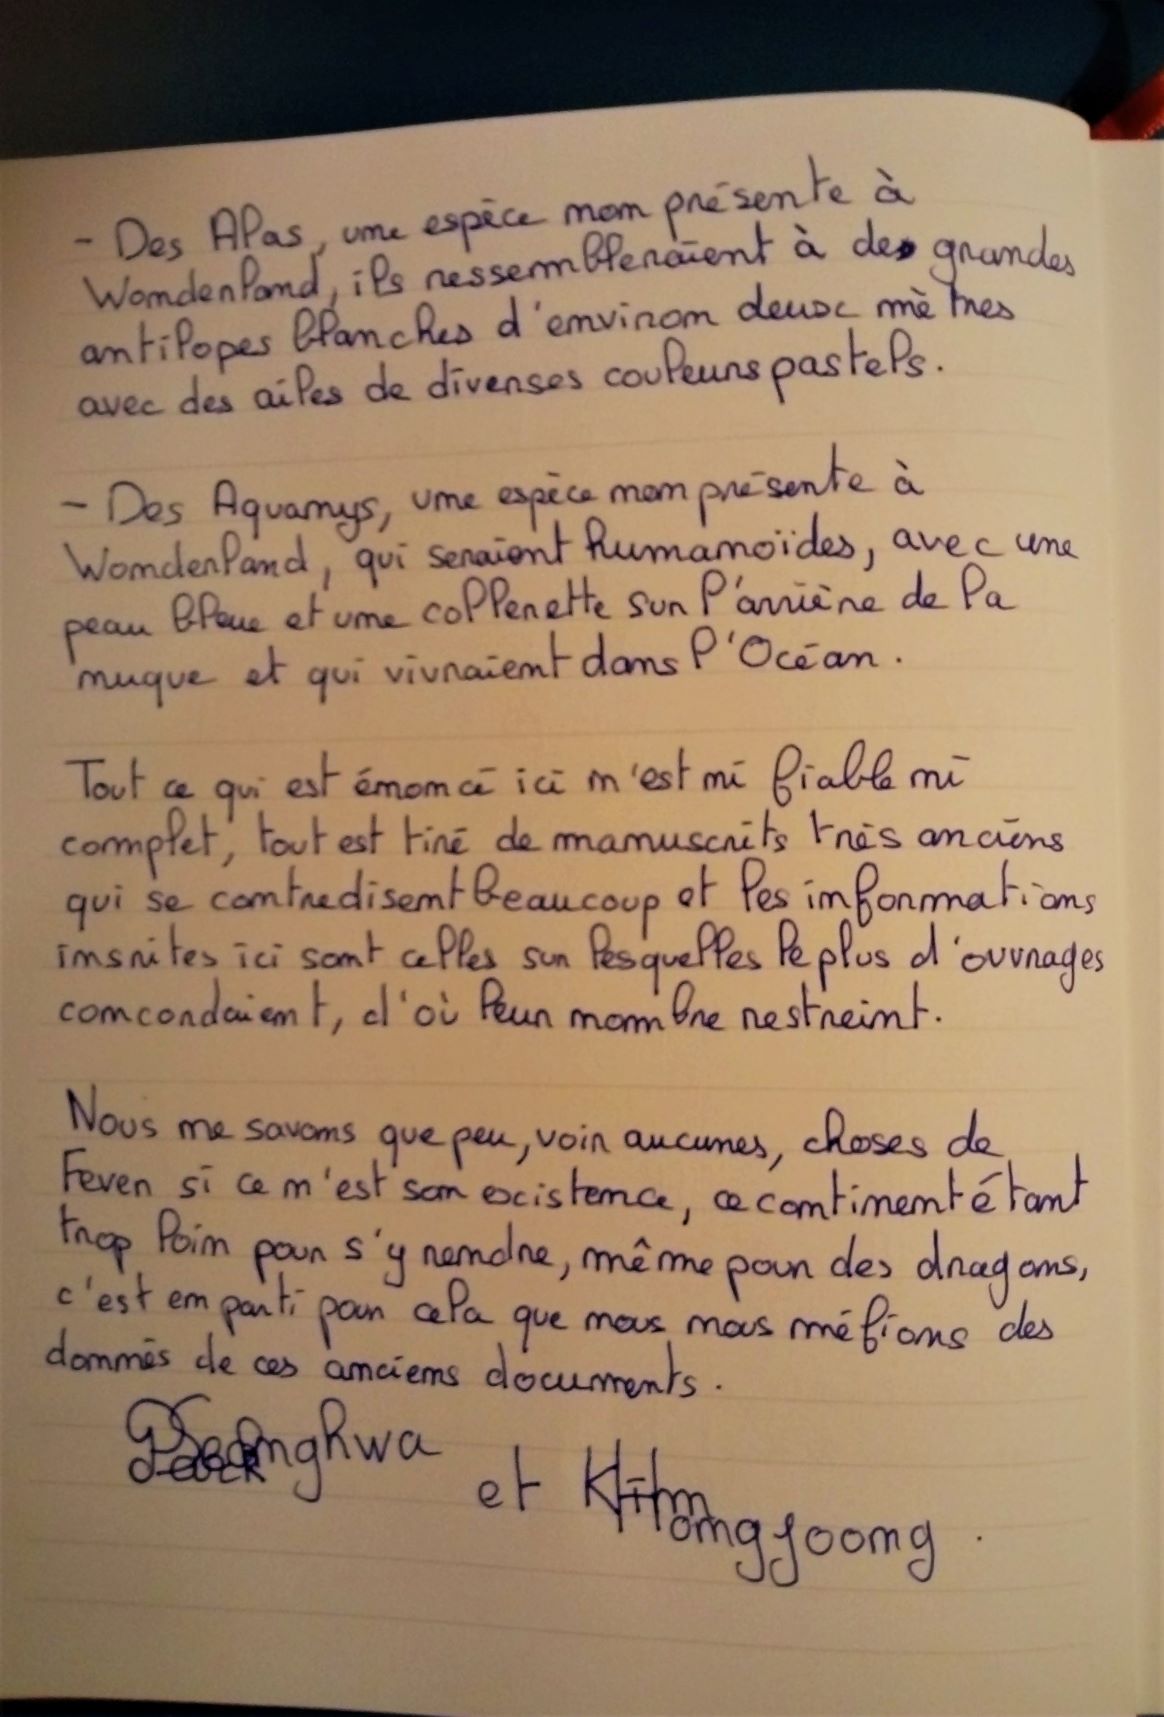 - Des Alas, une espèce non présente à
Wonderland, ils ressembleraient à des grandes
antilopes blanches d'environ deux mètres
avec des ailes de diverses couleurs pastels.
- Des Aquamys, une espèce non présente à
Wonderland, qui seraient humanoïdes, avec une
peau bleue et une collerette sur l'arrière de la
nuque et qui vivraient dans l'Océan.
Tout ce qui est énoncé ici n'est ni fiable ni
complet, tout est tiré de manuscrits très anciens
qui se contredisent beaucoup et les informations
insrites ici sont celles sur lesquelles le plus d'ouvrages
concordaient, d'où leur nombre restreint.
Nous ne savons que peu, voir aucunes, choses de
Feven si ce n'est son existence, ce continent étant
trop loin pour s'y rendre, même pour des dragons,
c'est en parti pour cela que nous nous méfions des
donnés de ces anciens documents.
Seonghwa
et Kim
Hongjoong.